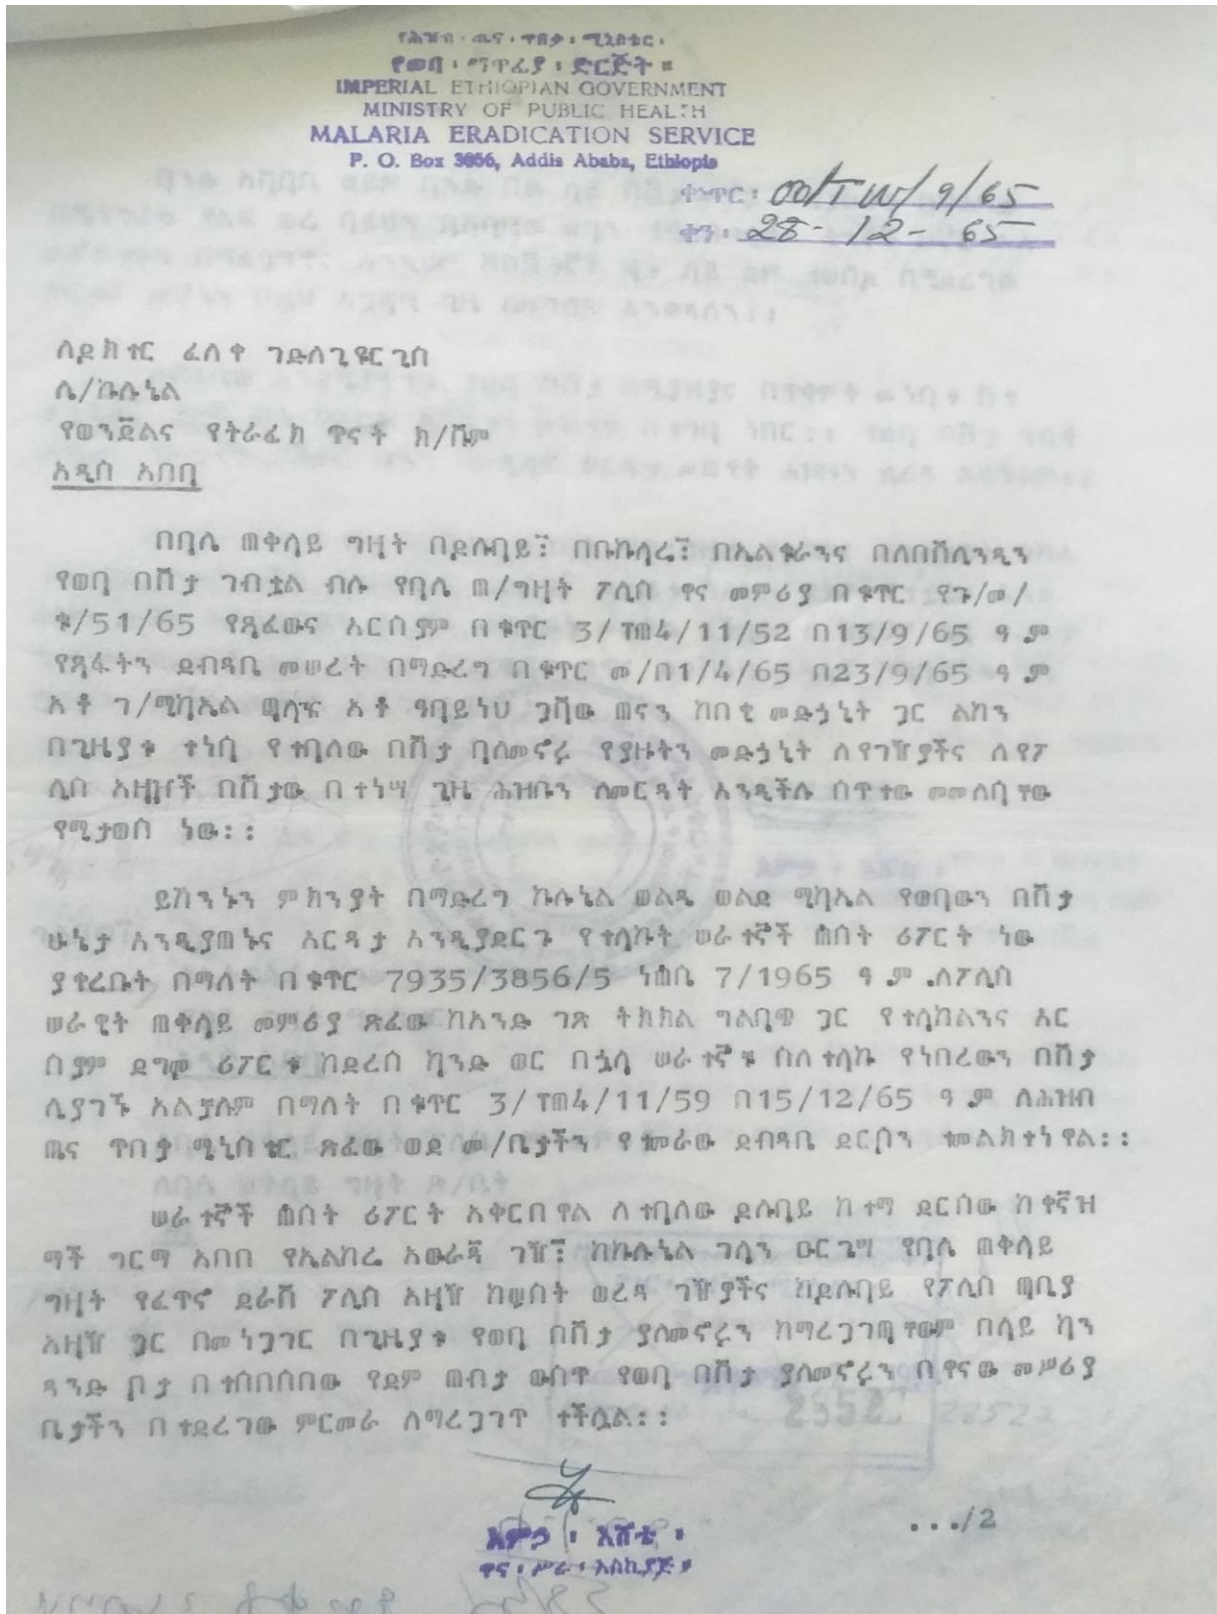 የሕዝብ ፡ ጤና ፡ ጥበቃ ፡ ሚኒስቴር ፡
የወባ ፡ ማጥፊያ ፡ ድርጅት ።
IMPERIAL ETHIOPIAN GOVERNMENT
MINISTRY OF PUBLIC HEALTH
MALARIA ERADICATION SERVICE
P. O. Box 3056, Addis Ababa, Ethiopia
ቍጥር ፡ /9/65
ቀን ፡ 28-12-65
ለዶክተር ፈለቀ ገድለጊዩርጊስ
ሌ/ኩሎኔል
የወንጀልና የትራፊክ ጥናት ክ/ሹም
አዲስ አበባ
በባሌ ጠቅላይ ግዛት በዶሎባይ፤ በቡኩላሬ፤ በኤልቁራንና በለበሽሊንዲን
የወባ በሽታ ገብቷል ብሎ የባሌ ጠ/ግዛት ፖሊስ ዋና መምሪያ በቁጥር የጉ/መ/
ቁ/51/65 የጻፈውና እርስዎም በቁጥር 3/ፐጠ4/11/52 በ13/9/65 ዓ ም
የጻፋትን ደብዳቤ መሠረት በማድረግ በቁጥር መ/በ1/4/65 በ23/9/65 ዓ ም
አቶ ገ/ሚካኤል አቶ ዓባይነህ ጋሻው ጠናን ከበቂ መድኃኒት ጋር ልከን
በጊዜያቱ ተነሣ የተባለው በሽታ ባለመኖሩ የያዙትን መድኃኒት ለየገዥዎችና ለየፖ
ሊስ አዛዦች በሽታው በተነሣ ጊዜ ሕዝቡን ለመርዳት እንዲችሉ ሰጥተው መመለሳቸው
የሚታወስ ነው፡፡
ይኸንኑን ምክንያት በማድረግ ኩሎኔል ወልዴ ወልደ ሚካኤል የወባውን በሽታ
ሁኔታ እንዲያጠኑና እርዳታ እንዲያደርጉ የተላኩት ሠራተኞች ሐሰት ሪፖርት ነው
ያቀረቡት በማለት በቁጥር 7935/3856/5 ነሐሴ 7/1965 ዓ ም ለፖሊስ
ሠራዊት ጠቅላይ መምሪያ ጽፈው ከአንድ ገጽ ትክክል ግልባጭ ጋር የተላከልንና እር
ስዎም ደግሞ ሪፖርቱ ከደረሰ ካንድ ወር በኋላ ሠራተኞቹ ስለተላኩ የነበረውን በሽታ
ሊያገኙ አልቻሉም በማለት በቁጥር 3/ፐጠ4/11/59 በ15/12/65 ዓ ም ለሕዝብ
ጤና ጥበቃ ሚኒስቴር ጽፈው ወደ መ/ቤታችን የተመራው ደብዳቤ ደርሶን ተመልክተነዋል፡፡
ሠራተኞች ሐሰት ሪፖርት አቅርበዋል ለተባለው ዶሎባይ ከተማ ደርሰው ከቀኛዝ
ማች ግርማ አበበ የኤልከሬ አውራጃ ገዥ፤ ከኩሎኔል ገላን ዑርጌሣ የባሌ ጠቅላይ
ግዛት የፈጥኖ ደራሽ ፖሊስ አዛዥ ከሦስት ወረዳ ገዥዎችና ከዶሎባይ የፖሊስ ጣቢያ
አዛዥ ጋር በመነጋገር በጊዜያቱ የወባ በሽታ ያለመኖሩን ከማረጋገጣቸውም በላይ ካን
ዳንድ ቦታ በተሰበሰበው የደም ጠብታ ውስጥ የወባ በሽታ ያለመኖሩን በዋናው መሥሪያ
ቤታችን በተደረገው ምርመራ ለማረጋገጥ ተችሏል፡፡
...​/2
እምኃ ፡ እሸቴ ፡
ዋና ፡ ሥራ ፡ አስኪያጅ ።